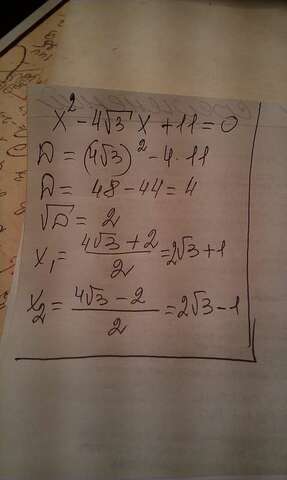 x² - 4√3 x + 11 = 0
D = (4√3)² - 4·11
D = 48 - 44 = 4
√D = 2
x₁ = (4√3 + 2)/2 = 2√3 + 1
x₂ = (4√3 - 2)/2 = 2√3 - 1